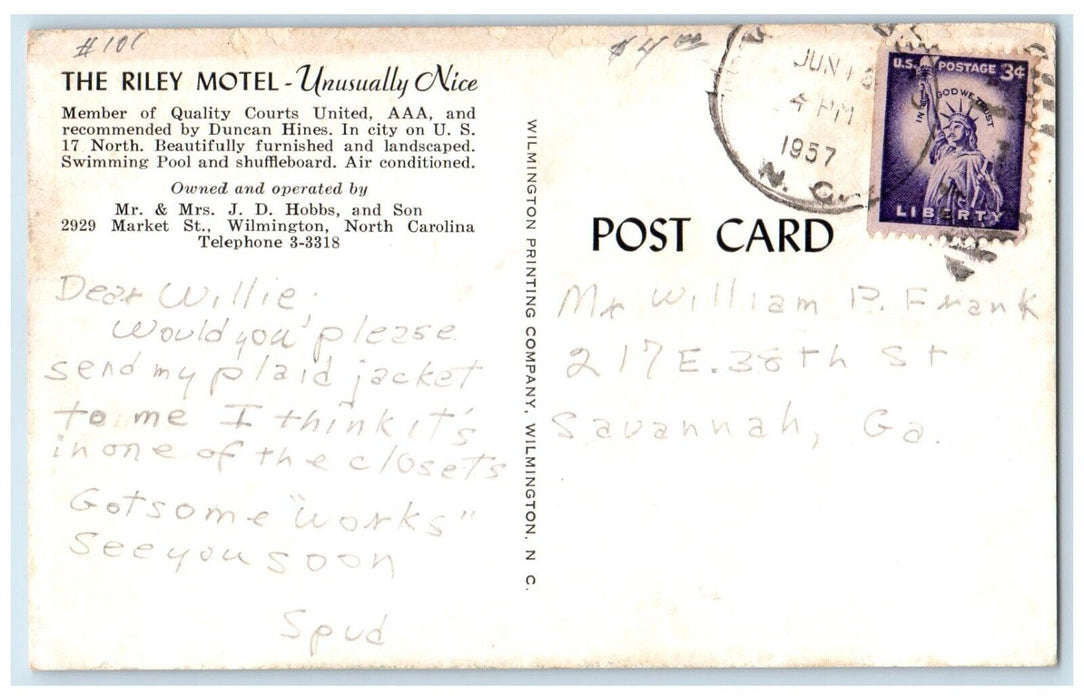 #101
$4.00
THE RILEY MOTEL - Unusually Nice
Member of Quality Courts United, AAA, and
recommended by Duncan Hines. In city on U. S.
17 North. Beautifully furnished and landscaped.
Swimming Pool and shuffleboard. Air conditioned.
Owned and operated by
Mr. & Mrs. J. D. Hobbs, and Son
2929 Market St., Wilmington, North Carolina
Telephone 3-3318
Dear Willie:
Would you please
send my plaid jacket
to me I think it's
in one of the closets
Got some "works"
See you soon
Spud
WILMINGTON PRINTING COMPANY, WILMINGTON, N C.
JUN 13
4 PM
1957
N. C.
U.S. POSTAGE 3¢
IN GOD WE TRUST
LIBERTY
POST CARD
Mr William P. Frank
217 E. 38th St
Savannah, Ga.